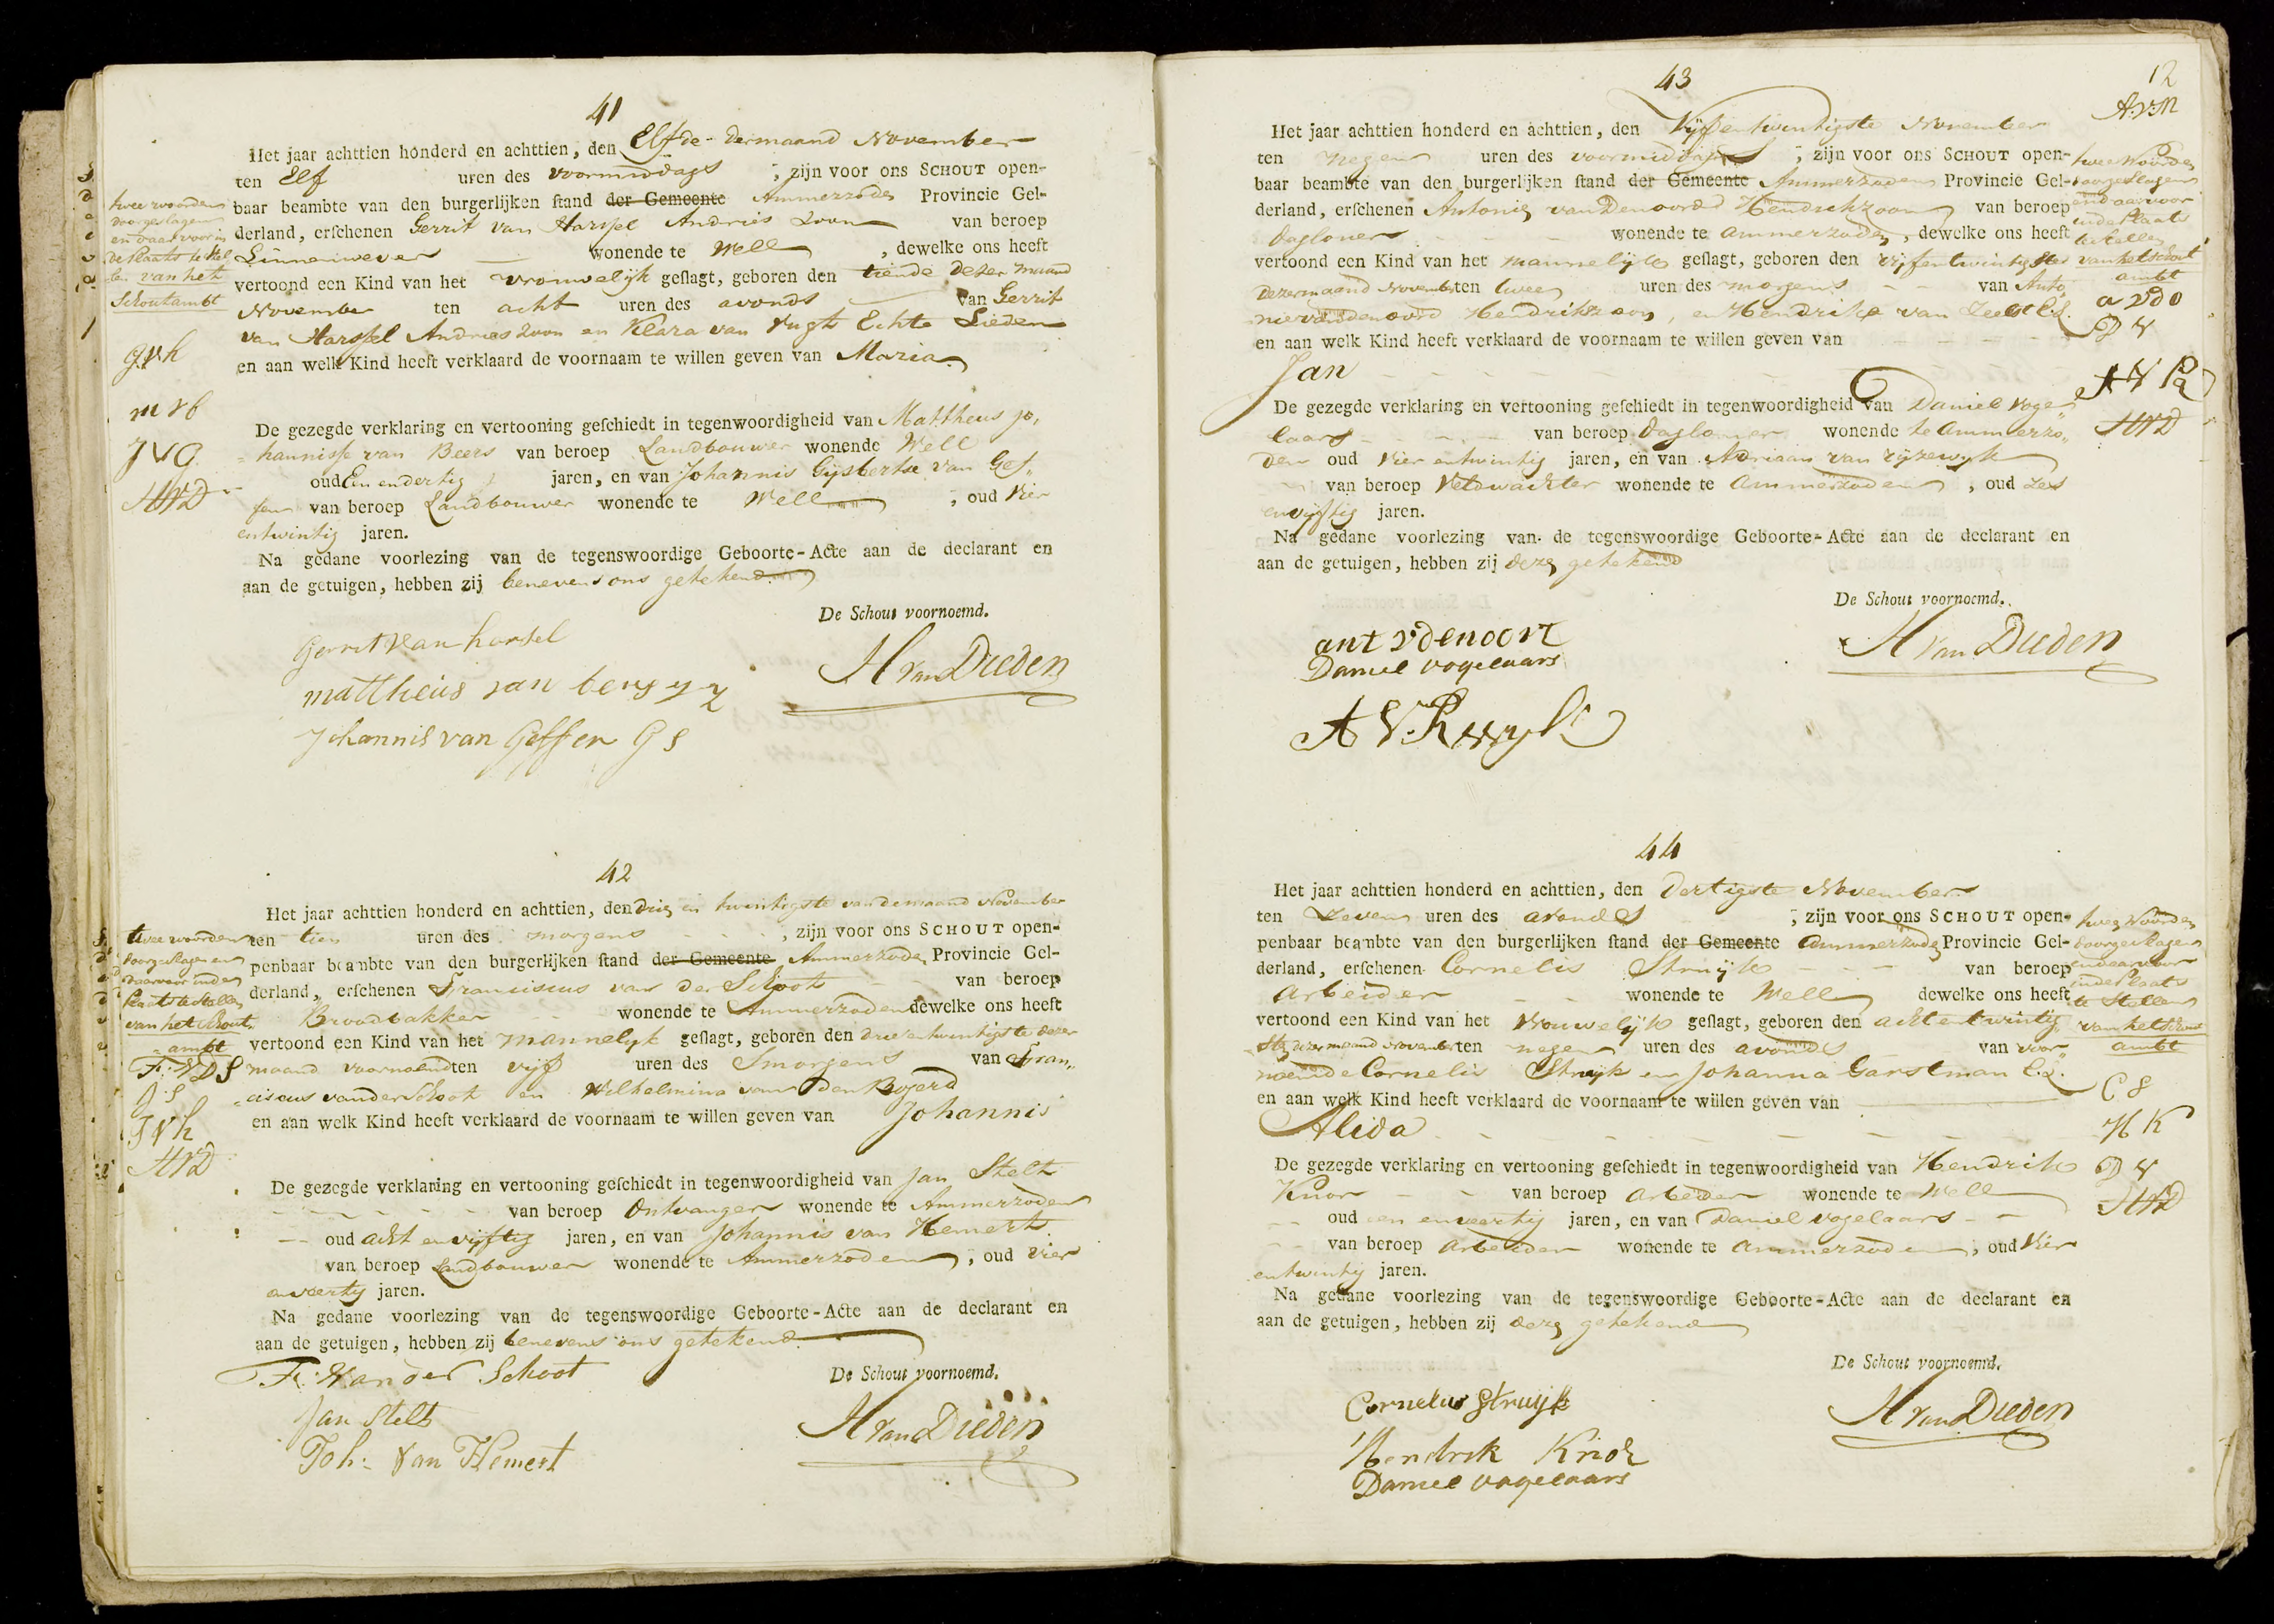 41
Het jaar achttien honderd en achttien, den Elfde dermaand November
ten Elf uren des voormiddags, zijn voor ons SCHOUT open-
baar beambte van den burgerlijken stand der Gemeente Ammerzoden Provincie Gel-
derland, erschenen Gerrit van Harssel Andries Zoon van beroep
Linnenwever wonende te Well, dewelke ons heeft
vertoond een Kind van het vrouwelijk geslagt, geboren den tiende dezer maand
November ten acht uren des avonds van Gerrit
van Harssel Andries Zoon en Klara van Vugt Echte Lieden
en aan welk Kind heeft verklaard de voornaam te willen geven van Maria
twee woorden
doorgeslagen
en daar voor in
de Plaats te stel
len van het
Schoutambt
gvh
mvb
JVG
HVD
De gezegde verklaring en vertooning geschiedt in tegenwoordigheid van Mattheus Jo,
hannisse van Beers van beroep Landbouwer wonende Well
oud Een en dertig jaren, en van Johannis Gijsbertse van Gef,,
fen van beroep Landbouwer wonende te Well, oud Vier
entwintig jaren.
Na gedane voorlezing van de tegenswoordige Geboorte-Acte aan de declarant en
aan de getuigen, hebben zij benevens ons getekend
De Schout voornoemd.
Gerrit van harsel
mattheus van bers
Johannis van Geffen G S
H van Dieden
42
Het jaar achttien honderd en achttien, den drie en twintigste van de maand November
ten tien uren des morgens, zijn voor ons SCHOUT open-
penbaar beambte van den burgerlijken stand der Gemeente Ammerzoden Provincie Gel-
derland, erschenen Franciscus van der Schoot van beroep
Broodbakker wonende te Ammerzoden dewelke ons heeft
vertoond een Kind van het mannelijk geslagt, geboren den drie entwintigste dezer
maand voornoemd ten vijf uren des Smorgens van Fran,,
ciscus van der Schoot en Wilhelmina van Den Bogerd
en aan welk Kind heeft verklaard de voornaam te willen geven van Johannis
twee woorden
doorgeslagen en
daarvoor in den
Plaats te stellen
van het Schout
ambt
F: VDS
J S
JVh
HVD
De gezegde verklaring en vertooning geschiedt in tegenwoordigheid van Jan Stelt
van beroep Ontvanger wonende te Ammerzoden
oud acht en vijftig jaren, en van Johannis van Hemert
van beroep Landbouwer wonende te Ammerzoden, oud vier
en veertig jaren.
Na gedane voorlezing van de tegenswoordige Geboorte-Acte aan de declarant en
aan de getuigen, hebben zij benevens ons getekend
De Schout voornoemd.
F: Van der Schoot
Jan Stelt
Joh: Van Hemert
H van Dieden
43
12
Het jaar achttien honderd en achttien, den Vijfentwintigste November
ten negen uren des voormiddags, zijn voor ons SCHOUT open-
baar beambte van den burgerlijken stand der Gemeente Ammerzoden Provincie Gel-
derland, erschenen Antonij van Denoord Hendrikzoon van beroep
Dagloner wonende te Ammerzoden, dewelke ons heeft
vertoond een Kind van het mannelijk geslagt, geboren den vijfentwintigste
Dezermaand November ten twee uren des morgens van Anto,
nie van denoord Hendrikzoon, en Hendrika van Zeelst E.L.
en aan welk Kind heeft verklaard de voornaam te willen geven van
Jan
twee woorden
doorgeslagen
en daarvoor
in de Plaats
te stellen
van het schout
ambt
a vdo
D V
A V R
HVD
De gezegde verklaring en vertooning geschiedt in tegenwoordigheid van Daniel Voge
laars van beroep Dagloner wonende te Ammerzo,,
den oud Vier entwintig jaren, en van Adriaan van rijzewijk
van beroep Veldwachter wonende te Ammerzoden, oud zes
envijftig jaren.
Na gedane voorlezing van de tegenswoordige Geboorte-Acte aan de declarant en
aan de getuigen, hebben zij deze getekend
De Schout voornoemd.
ant vdenoort
Daniel vogelaars
H van Dieden
44
Het jaar achttien honderd en achttien, den Dertigste November
ten Zeven uren des avonds, zijn voor ons SCHOUT open-
penbaar beambte van den burgerlijken stand der Gemeente Ammerzoden Provincie Gel-
derland, erschenen Cornelis Struijk van beroep
Arbeider wonende te Well dewelke ons heeft
vertoond een Kind van het Vrouwelijk geslagt, geboren den acht entwintig
ste dezer maand November ten negen uren des avonds van voor,,
noemde Cornelis Struijk en Johanna Garstman E.L.
en aan welk Kind heeft verklaard de voornaam te willen geven van
Alida
twee woorden
doorgeslagen
en daarvoor
in de Plaats
te stellen
van het schout
ambt
C S
H K
D V
HVD
De gezegde verklaring en vertooning geschiedt in tegenwoordigheid van Hendrik
Knor van beroep Arbeider wonende te Well
oud een enveertig jaren, en van Daniel vogelaars
van beroep Arbeider wonende te Ammerzoden, oud Vier
entwintig jaren.
Na gedane voorlezing van de tegenswoordige Geboorte-Acte aan de declarant en
aan de getuigen, hebben zij deze getekend
De Schout voornoemd.
Cornelus Struijk
Hendrik Knor
Daniel vogelaars
H van Dieden